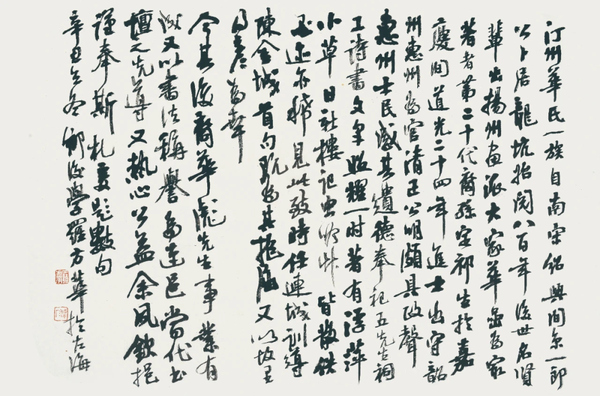 汀州華氏一族自南宋紹興間原一郎
公卜居龍坑拓開八百年後世名賢
輩出揚州畫派大家華嵒為
著者第二十代裔孫宗祁生於嘉
慶間道光二十四年進士出守韶
州惠州為官清正公明頗具政聲
惠州士民感其遺德奉祀五先生祠
工詩書文章照耀一時著有浮萍
小草日社樓記皆散佚
亦稀見此致時任連城訓導
陳金城首句既為其抱屈又以故
為聲
今其後裔華彪先生事業有
成又以書法稱譽為連邑當代書
壇之先導又熱心公益余夙欽挹
謹奉斯札更題數句
辛丑之冬鄉後學羅方華於左海